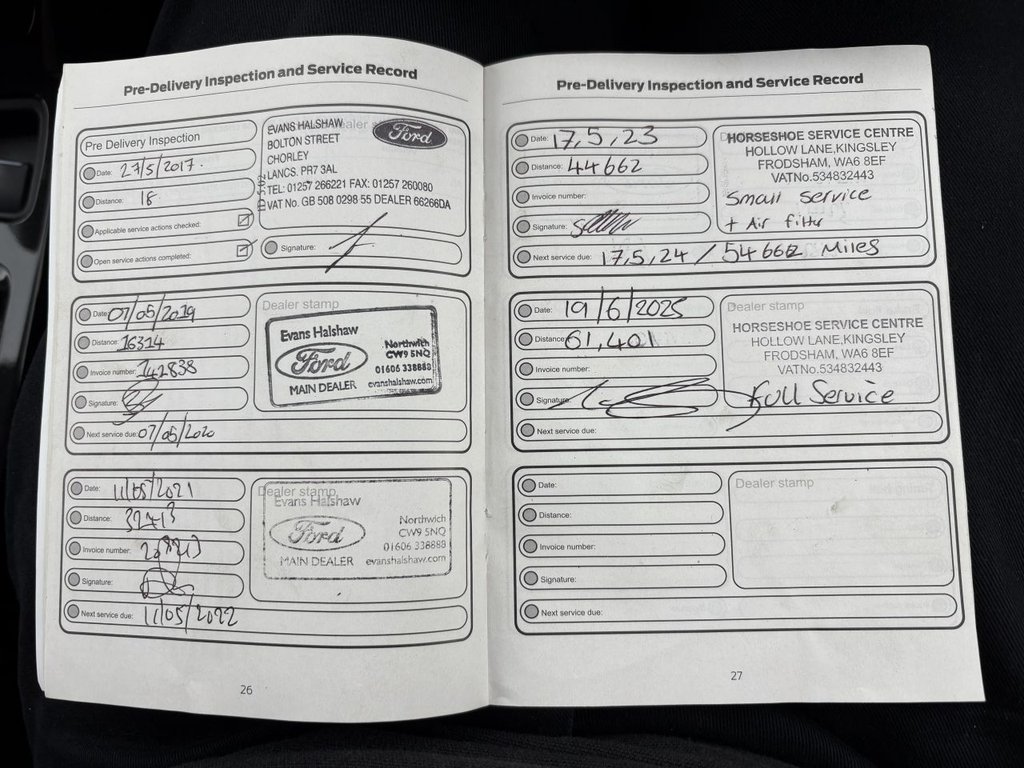 Pre-Delivery Inspection and Service Record
Pre Delivery Inspection
Date: 27/5/2017.
Distance: 18
Applicable service actions checked:
Open service actions completed:
EVANS HALSHAW
BOLTON STREET
CHORLEY
LANCS. PR7 3AL
TEL: 01257 266221 FAX: 01257 260080
VAT No. GB 508 0298 55 DEALER 66266DA
Ford
Signature:
Date: 07/05/2019
Distance: 16314
Invoice number: 142838
Signature:
Next service due: 07/05/2020
Dealer stamp
Evans Halshaw
Ford
MAIN DEALER
Northwich
CW9 5NQ
01606 338888
evanshalshaw.com
Date: 11/05/2021
Distance: 32713
Invoice number:
Signature:
Next service due: 11/05/2022
Dealer stamp
Evans Halshaw
Ford
MAIN DEALER
Northwich
CW9 5NQ
01606 338888
evanshalshaw.com
26
Pre-Delivery Inspection and Service Record
Date: 17,5,23
Distance: 44662
Invoice number:
Signature:
Next service due: 17,5,24 / 54662 Miles
HORSESHOE SERVICE CENTRE
HOLLOW LANE,KINGSLEY
FRODSHAM, WA6 8EF
VATNo.534832443
Small Service
+ Air filter
Date: 19/6/2025
Distance: 61,401
Invoice number:
Signature:
Next service due:
Dealer stamp
HORSESHOE SERVICE CENTRE
HOLLOW LANE,KINGSLEY
FRODSHAM, WA6 8EF
VATNo.534832443
Full Service
Date:
Distance:
Invoice number:
Signature:
Next service due:
Dealer stamp
27